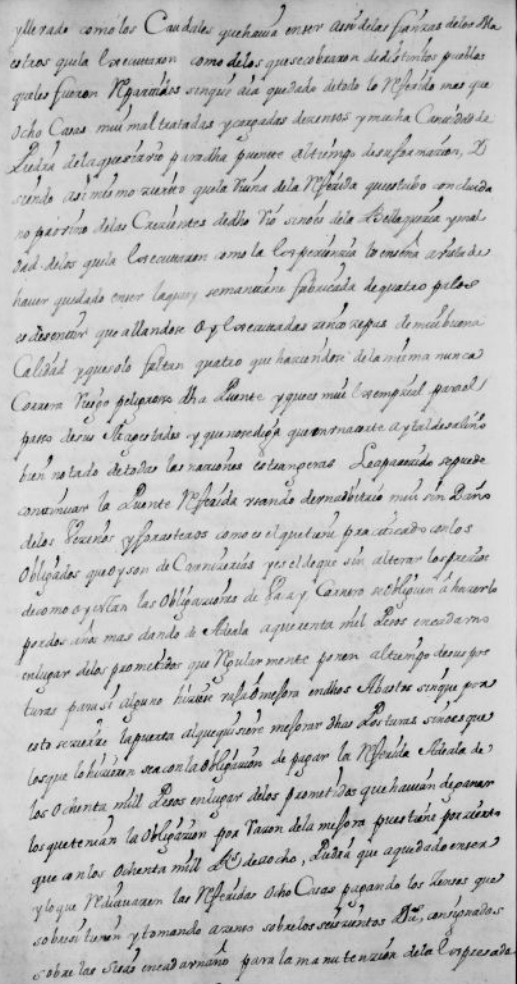 y llevado como los Caudales que havia en ser assi de las fianzas de los Ma
estros que la Executaron como de los que se cobraron de distintos pueblos
quales fueron Repartidos sin que aia quedado de todo lo Referido mas que
Ocho Casas mui mal tratadas y cargadas de zensos y mucha Cantidad de
Piedra de la que sirvio para dha puente al tiempo de su formazion,
siendo asi mismo zierto que la Ruina de la Referida que estubo concluida
no provino de las Crezientes de dho Rio sino es de la Bellaqueria y mal
dad de los que la Executaron como la Experienzia lo enseña a vista de
haver quedado en ser la que oy se mantiene fabricada de quatro palos
es de sentir que allandose oy Executadas zinco zepas de mui buena
Calidad y que solo faltan quatro que haciendose de la misma nunca
Correra Riesgo peligroso dha Puente y que es mui Exempcial para el
passo de sus Magestades y que no se diga que en la corte ay tal desaliño
bien notado de todas las naciones estrangeras Le a parezido se puede
continuar la Puente Referida usando de un advitrio mui sin Daño
de los Vezinos y forasteros como es el que tiene practicado con los
Obligados que oy son de Carnizerias y es el de que sin alterar los prezios
de como oy estan las Obligaziones de Vaca y Carnero se obliguen a hacerlo
por dos años mas dando de Adeala a quarenta mil Pesos en cada uno
en lugar de los prometidos que Regularmente ponen al tiempo de sus pos
turas para si alguno hiziere vaja o mejora en dhos Abastos sin que por
esto se zierre la puerta al que quisiere mejorar dhas Posturas sino es que
los que lo hizieren sea con la Obligazion de pagar la Referida Adeala de
los Ochenta mil Pesos en lugar de los prometidos que havian de ganar
los que tenian la Obligazion por Razon de la mejora pues tiene por zierto
que con los Ochenta mil Rs de a ocho, Piedra que a quedado en ser
y lo que Redituaren las Referidas Ocho Casas pagando los Zensos que
sobre si tienen y tomando a zenso sobre los seiscientos Ds, consignados
sobre las Sisas en cada un año para la manutenzion de la Expresada